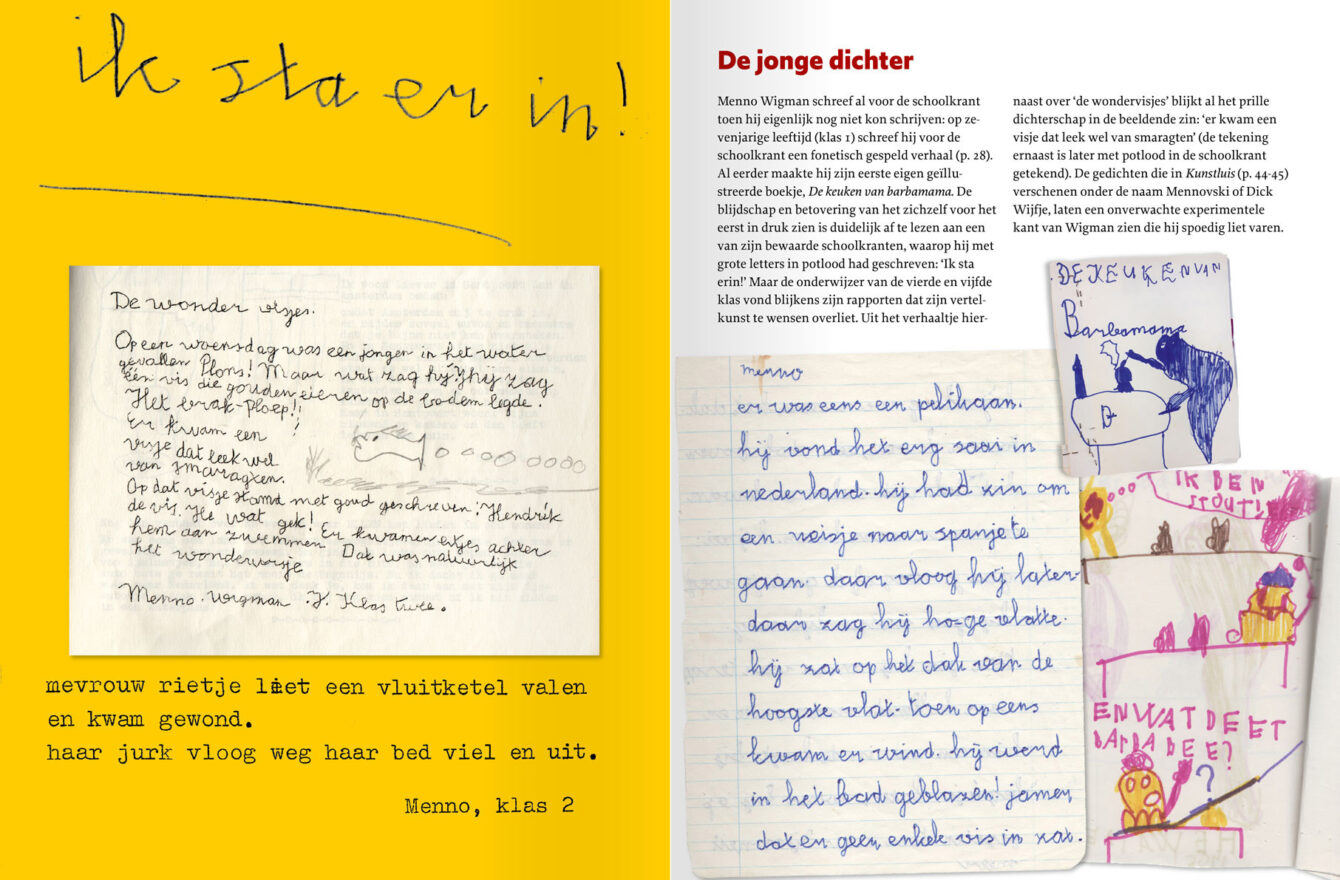 ik sta er in!
De wonder visjes.
Op een woensdag was een jongen in het water
gevallen Plons! Maar wat zag hij? hij zag
één vis die gouden eieren op de bodem legde.
Het brak-Ploep!!
Er kwam een
visje dat leek wel
van smaragten.
Op dat visje stond met goud geschreven: Hendrik
de vis. He wat gek! Er kwamen visjes achter
hem aan zwemmen Dat was natuurlijk
het wondervisje
Menno. Wigman .J. Klas twee.
mevrouw rietje liet een vluitketel valen
en kwam gewond.
haar jurk vloog weg haar bed viel en uit.
Menno, klas 2
De jonge dichter
Menno Wigman schreef al voor de schoolkrant
toen hij eigenlijk nog niet kon schrijven: op ze-
venjarige leeftijd (klas 1) schreef hij voor de
schoolkrant een fonetisch gespeld verhaal (p. 28).
Al eerder maakte hij zijn eerste eigen geïllu-
streerde boekje, De keuken van barbamama. De
blijdschap en betovering van het zichzelf voor het
eerst in druk zien is duidelijk af te lezen aan een
van zijn bewaarde schoolkranten, waarop hij met
grote letters in potlood had geschreven: ‘Ik sta
erin!’ Maar de onderwijzer van de vierde en vijfde
klas vond blijkens zijn rapporten dat zijn vertel-
kunst te wensen overliet. Uit het verhaaltje hier-
naast over ‘de wondervisjes’ blijkt al het prille
dichterschap in de beeldende zin: ‘er kwam een
visje dat leek wel van smaragten’ (de tekening
ernaast is later met potlood in de schoolkrant
getekend). De gedichten die in Kunstluis (p. 44-45)
verschenen onder de naam Mennovski of Dick
Wijfje, laten een onverwachte experimentele
kant van Wigman zien die hij spoedig liet varen.
DE KEUKEN VAN
Barbamama
menno
er was eens een pelikaan.
hij vond het erg saai in
nederland. hij had zin om
een reisje naar spanje te
gaan. daar vloog hij later-
daar zag hij ho-ge vlatte.
hij zat op het dak van de
hoogste vlat. toen op eens
kwam er wind. hij werd
in het bad geblazen! jamer,
dat er geen enkele vis in zat.
IK BEN
STOUT!
EN WAT DEET
BARBABEE?